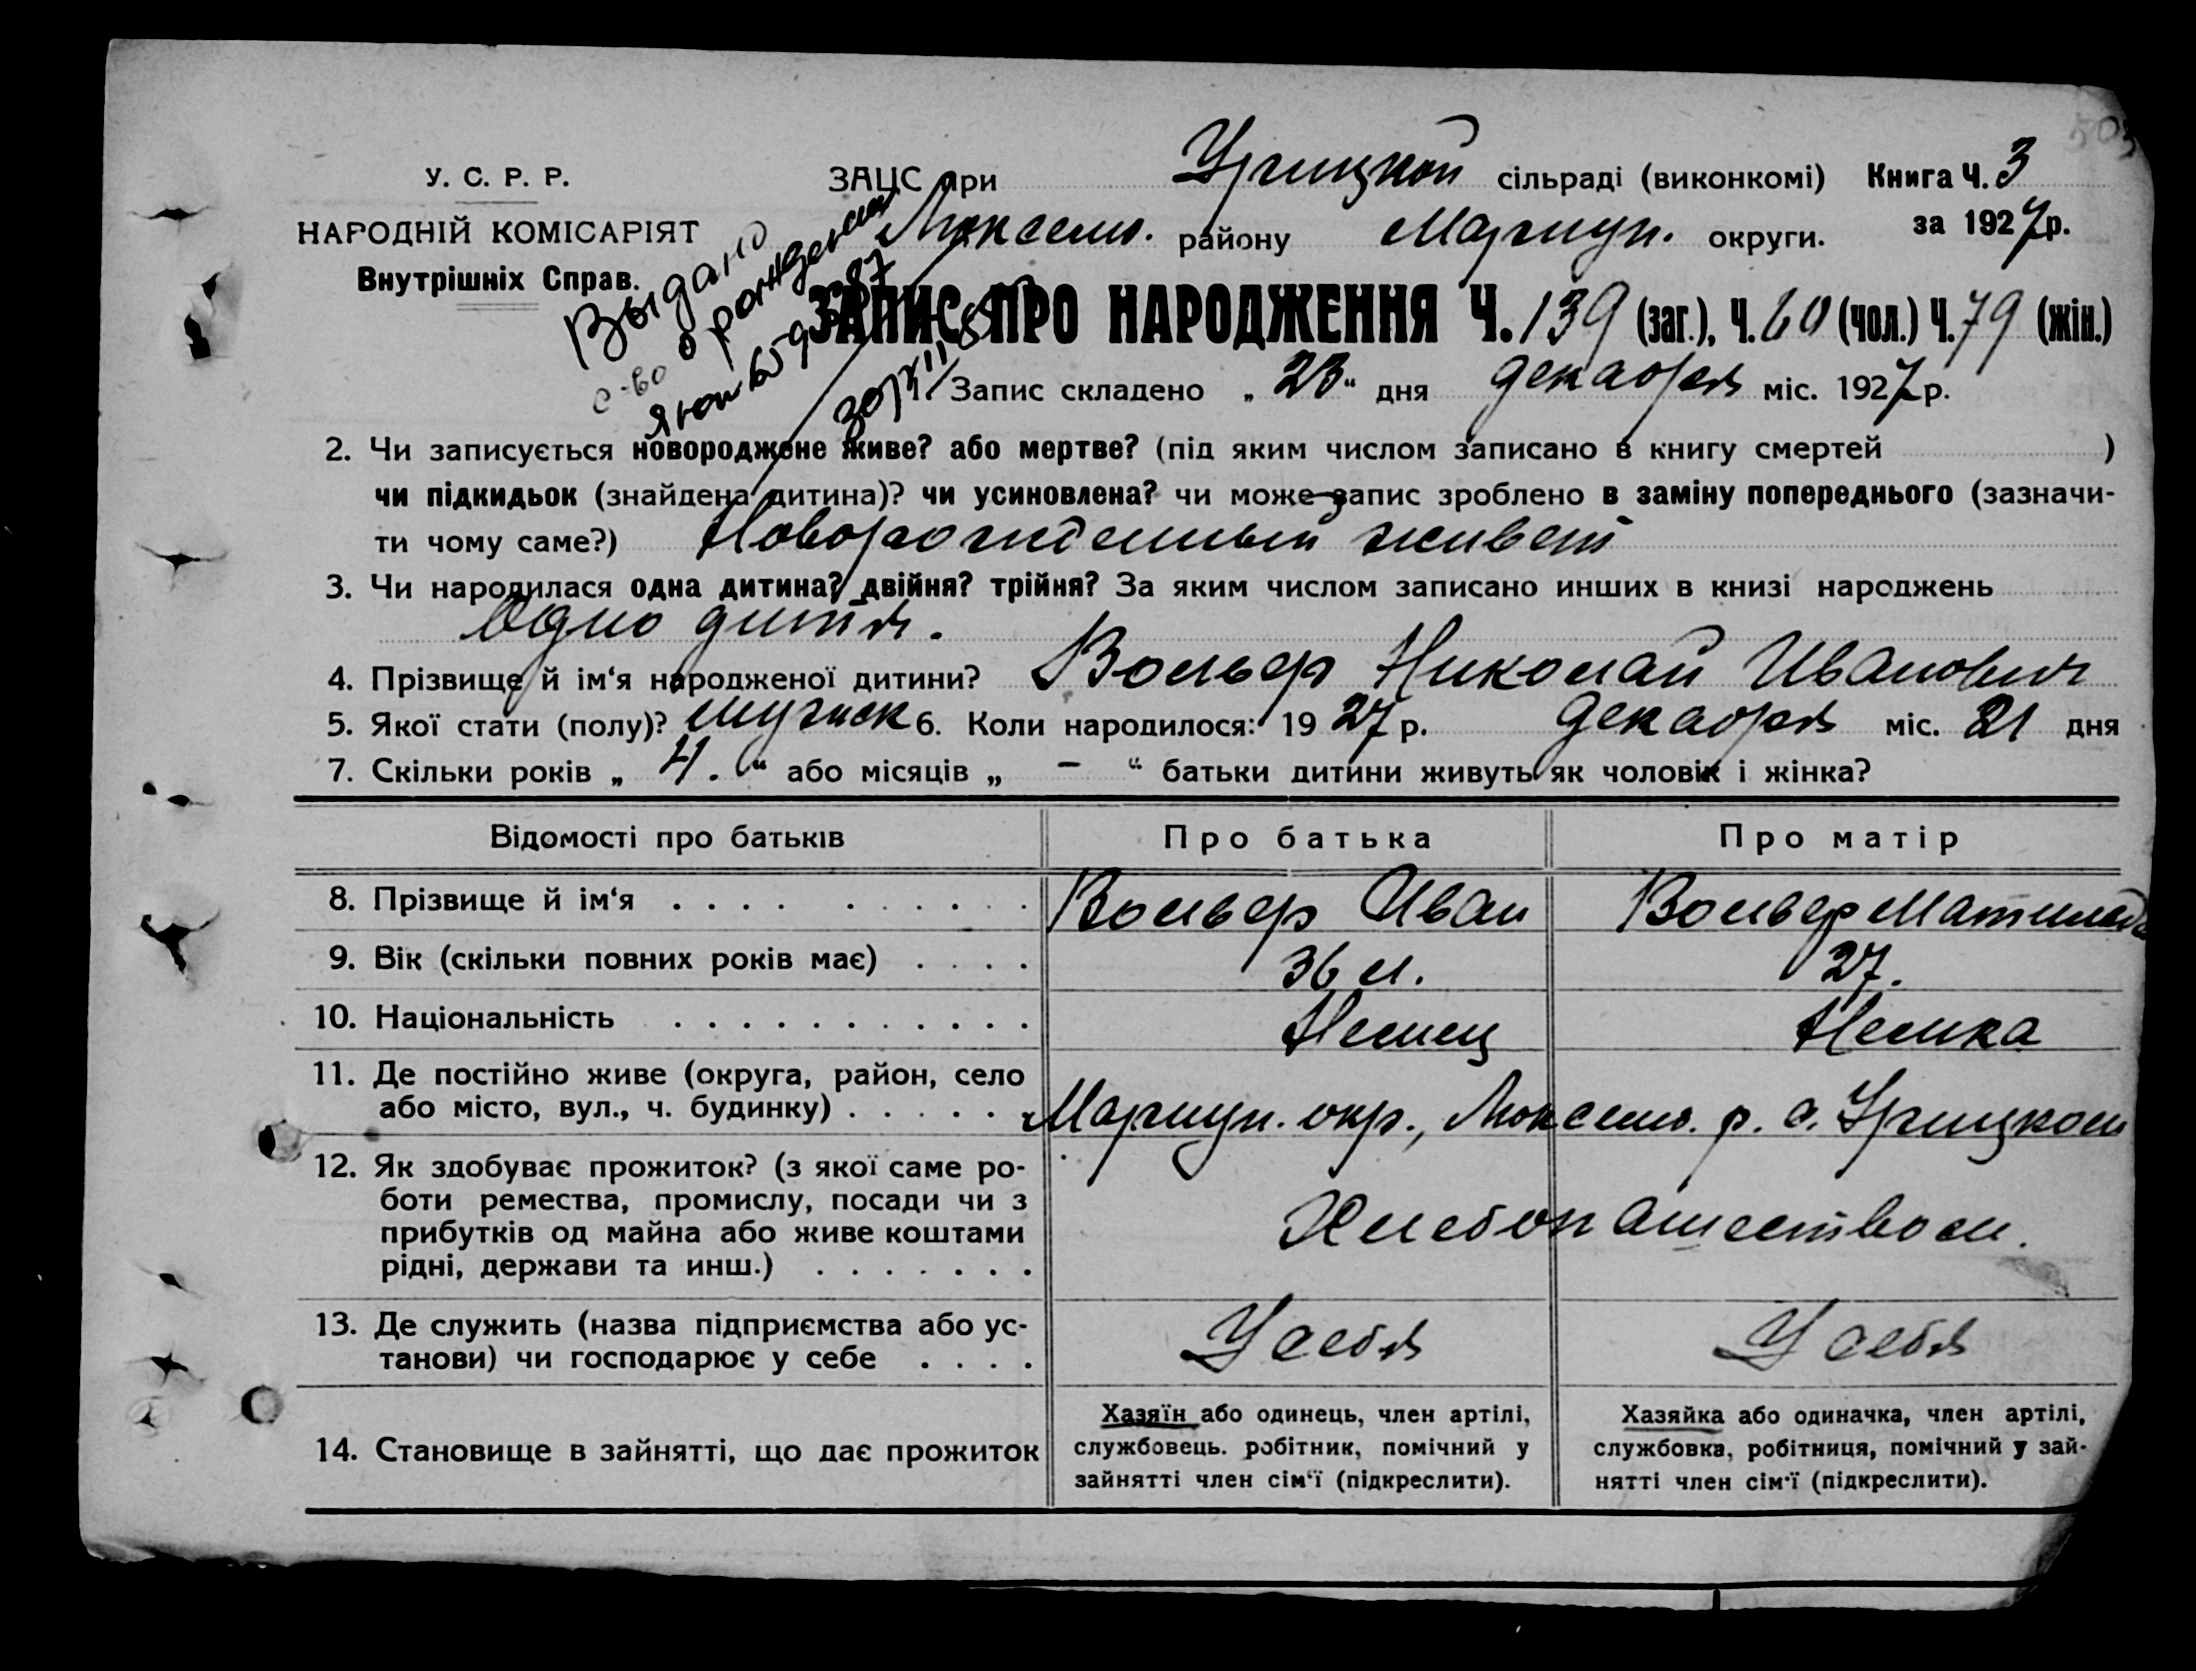 У. С. Р. Р.
НАРОДНІЙ КОМІСАРІЯТ
Внутрішніх Справ.
ЗАЦС при Урицкой сільраді (виконкомі) Книга Ч. 3
Люксемб. району Мариуп. округи. за 1927 р.
Выдано
с-во о рождении
ЗАПИС ПРО НАРОДЖЕННЯ Ч. 139 (заг.), Ч. 60 (чол.) Ч. 79 (жін.)
1. Запис складено „ 23 “ дня декабря міс. 1927 р.
2. Чи записується новороджене живе? або мертве? (під яким числом записано в книгу смертей )
чи підкидьок (знайдена дитина)? чи усиновлена? чи може запис зроблено в заміну попереднього (зазначи-
ти чому саме?) Новорожденный живет
3. Чи народилася одна дитина? двійня? трійня? За яким числом записано инших в книзі народжень
Одно дитя.
4. Прізвище й ім‘я народженої дитини? Вольвер Николай Иванович
5. Якої стати (полу)? мужск 6. Коли народилося: 1927 р. декабря міс. 21 дня
7. Скільки років „ 4. “ або місяців „ – “ батьки дитини живуть як чоловік і жінка?
Відомості про батьків Про батька Про матір
8. Прізвище й ім‘я . . . . . . . . . . Вольвер Иван Вольвер Матильда
9. Вік (скільки повних років має) . . . . 36 л. 27.
10. Національність . . . . . . . . . . . Немец Немка
11. Де постійно живе (округа, район, село
або місто, вул., ч. будинку) . . . . . . Мариуп. окр., Люксемб. р. с. Урицком
12. Як здобуває прожиток? (з якої саме ро-
боти ремества, промислу, посади чи з
прибутків од майна або живе коштами
рідні, держави та инш.) . . . . . . .
Хлебопашеством.
13. Де служить (назва підприємства або ус-
танови) чи господарює у себе . . . . У себя У себя
14. Становище в зайнятті, що дає прожиток
Хазяїн або одинець, член артілі,
службовець. робітник, помічний у
зайнятті член сім‘ї (підкреслити).
Хазяйка або одиначка, член артілі,
службовка, робітниця, помічний у зай-
нятті член сім‘ї (підкреслити).